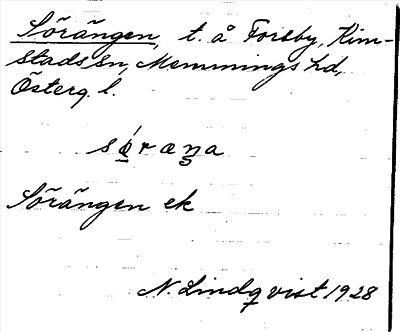 Sörängen, t. å Forsby, Kim-
stads sn, Memmings hd,
Österg. l.
sø̀ræŋa
Sörängen ek
N. Lindqvist 1928